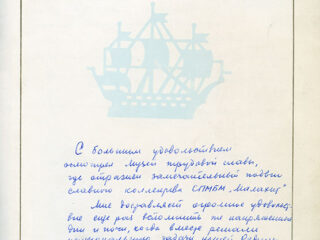 С большим удовольствием
осмотрел музей трудовой славы,
где отражен замечательный подвиг
славного коллектива СПМБМ „Малахит"
Мне доставляет огромное удовольст-
вие еще раз вспомнить те напряженные
дни и ночи, когда вместе решали
задачи нашей Родины